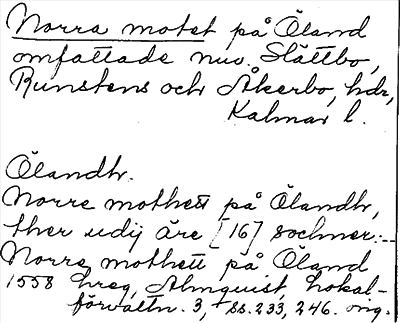 Norra motet på Öland
omfattade nuv. Slättbo,
Runstens och Åkerbo, hdr,
Kalmar l.
Ölandhr.
Norre mothett på Ölandhr,
ther udij äre [16] sochner: --
Norre mothett på Öland
1558 hreg, Almquist, Lokal-
förvaltn. 3, ss. 233, 246. orig.